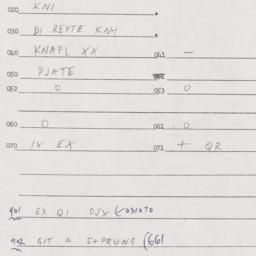 020 KNI
030 DI REXTE KNI
040 KNAFL XX 041 —
050 PJATE
052 0 053 0
060 0 061 0
070 IX EX 071 + QR
901 EX QI OJX (031070
902 GIT A 5+PRUNG (661